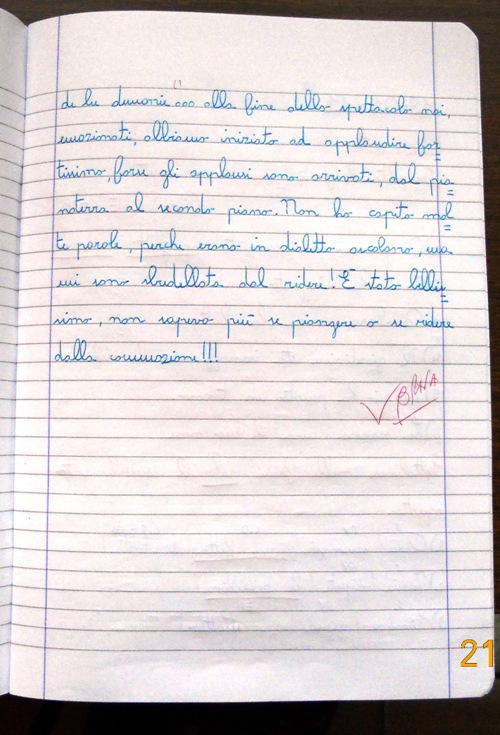 de le demonie... alla fine dello spettacolo noi,
emozionati, abbiamo iniziato ad applaudire for=
tissimo, forse gli applausi sono arrivati, dal pia=
noterra al secondo piano. Non ho capito mol=
te parole, perche erano in dialetto ascolano, ma
mi sono sbudellata dal ridere! È stato bellis=
simo, non sapevo più se piangere o se ridere
dalla commozione!!!
BRAVA
21